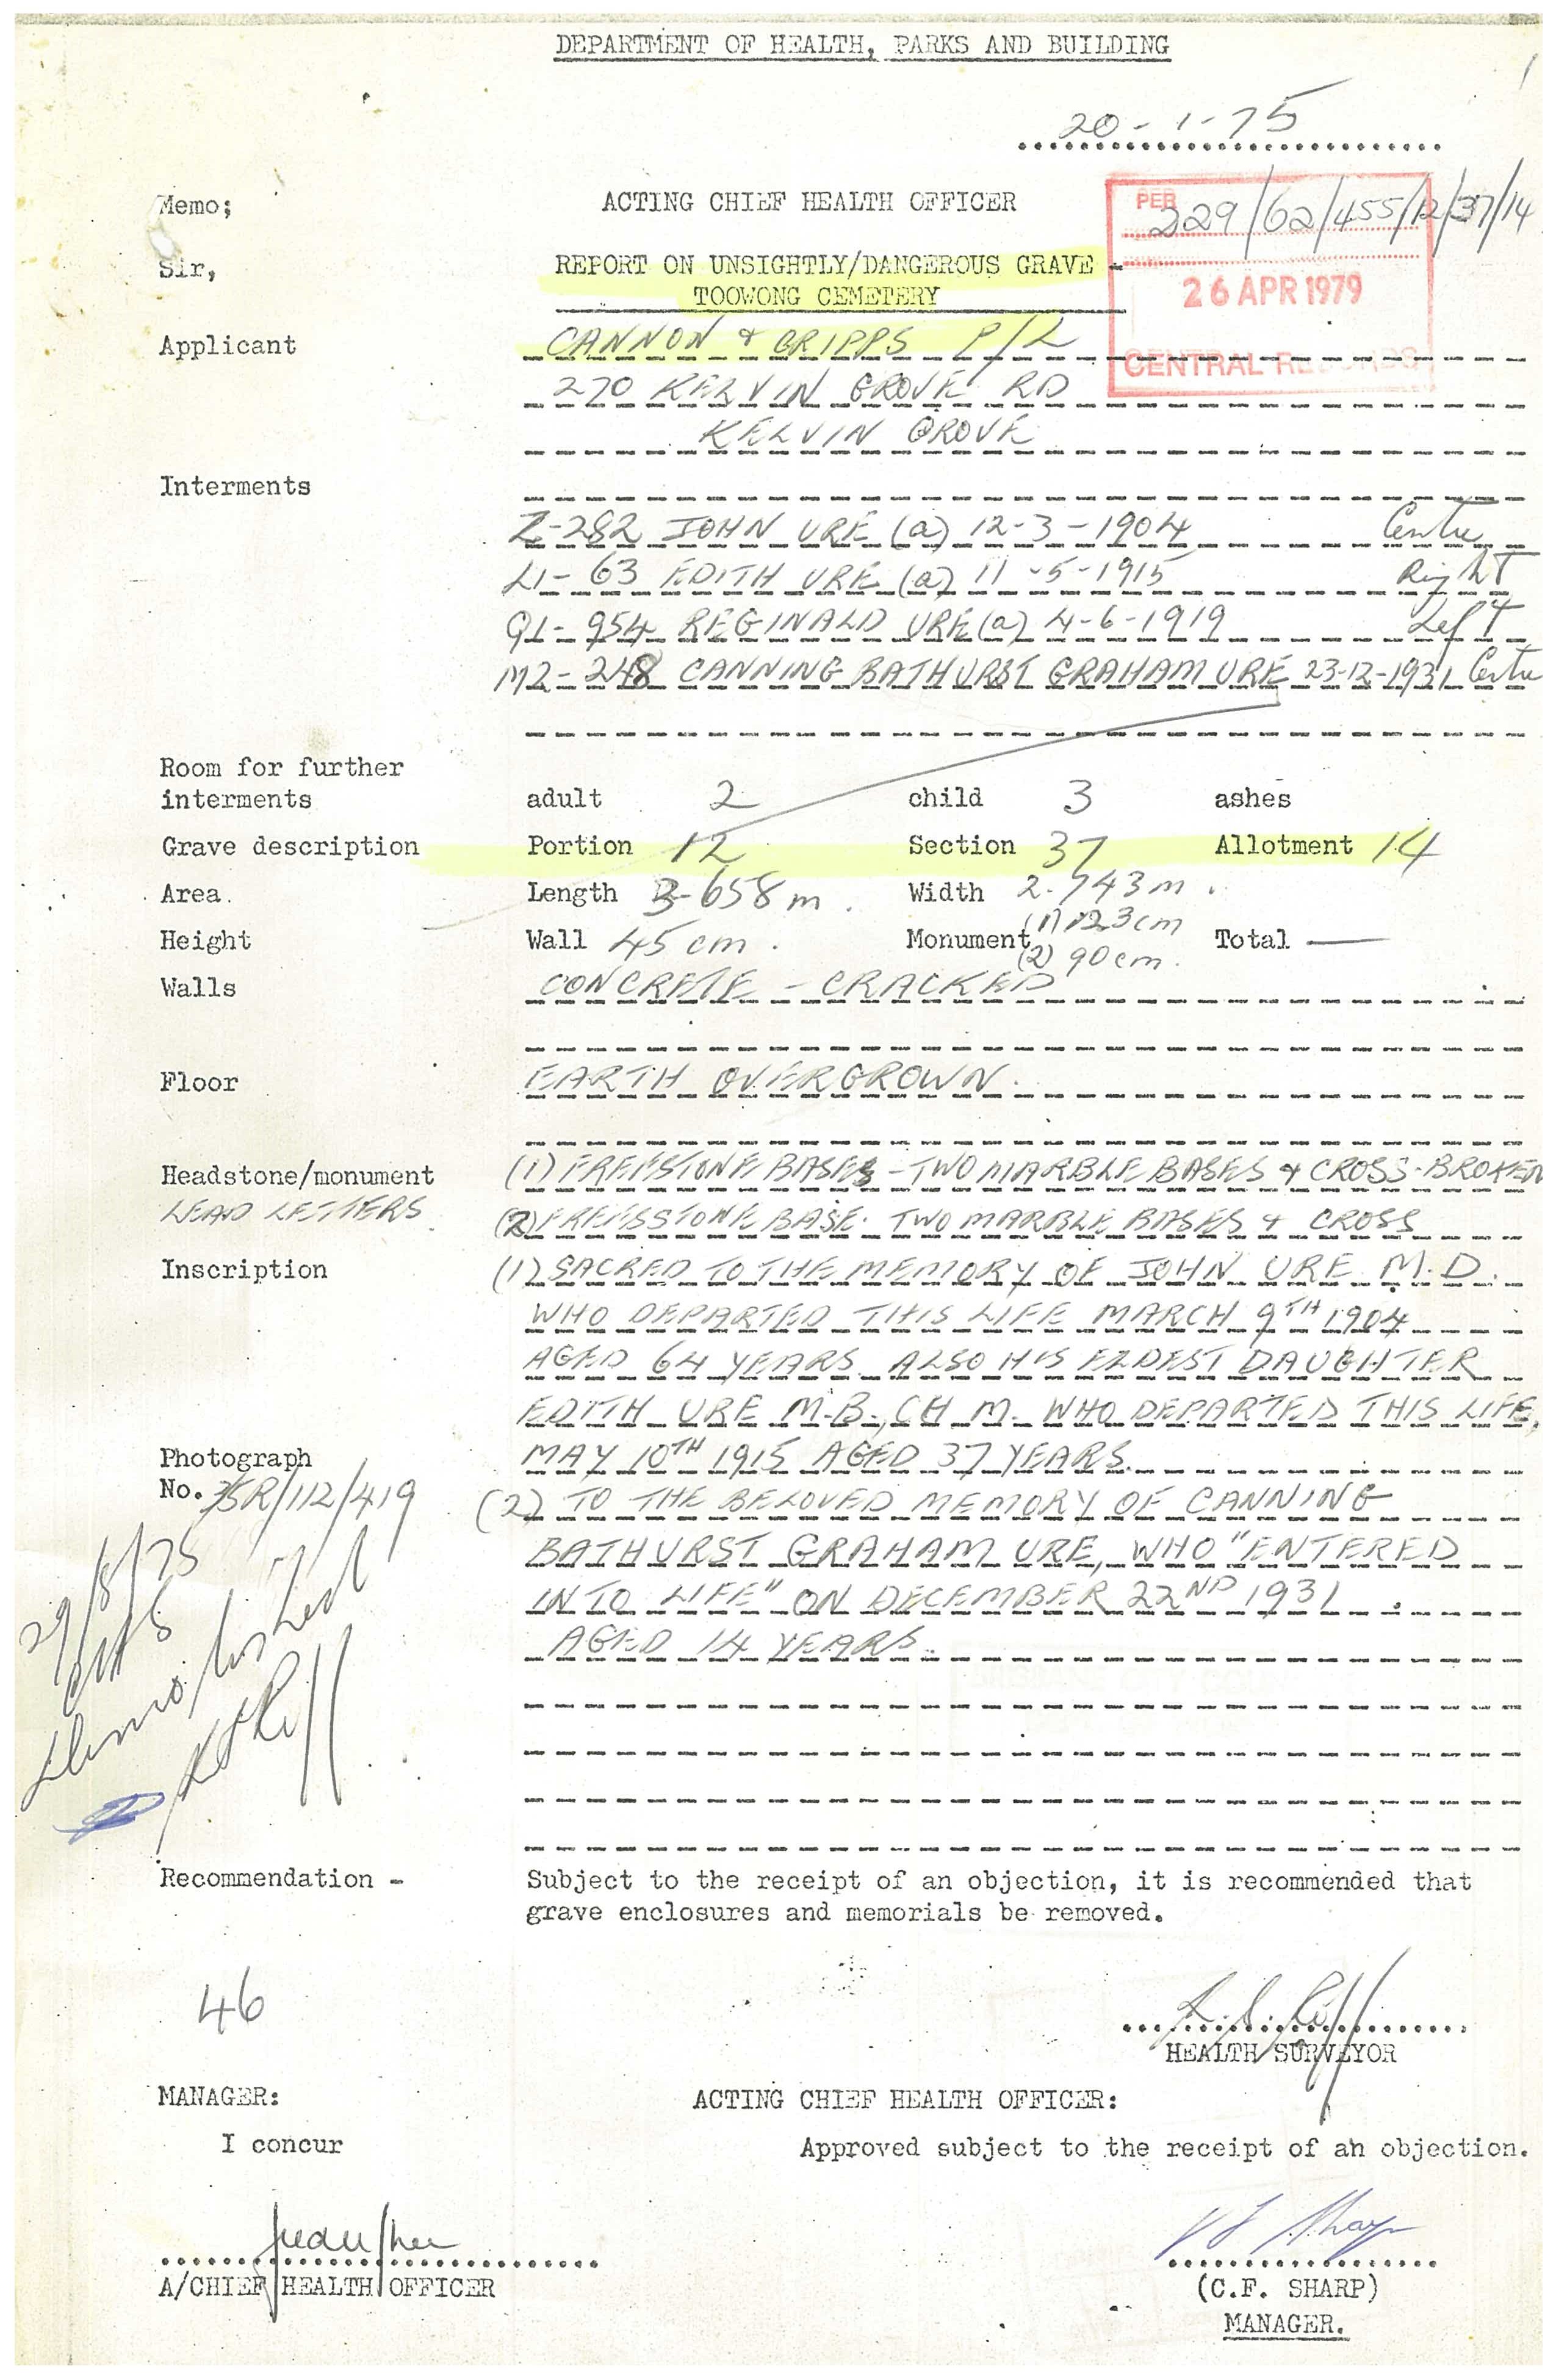 DEPARTMENT OF HEALTH, PARKS AND BUILDING
20-1-75
Memo; ACTING CHIEF HEALTH OFFICER
PER
229/62/455/12/37/14
Sir, REPORT ON UNSIGHTLY/DANGEROUS GRAVE -
TOOWONG CEMETERY
26 APR 1979
CENTRAL RECORDS
Applicant CANNON & CRIPPS P/L
270 KELVIN GROVE RD
KELVIN GROVE
Interments
Z-282 JOHN URE (a) 12-3-1904 Centre
L1-63 EDITH URE (a) 11-5-1915 Right
Q1-954 REGINALD URE (a) 4-6-1919 Left
M2-248 CANNING BATHURST GRAHAM URE 23-12-1931 Centre
Room for further
interments adult 2 child 3 ashes
Grave description Portion 12 Section 37 Allotment 14
Area. Length 3.658 m. Width 2.743 m.
Height Wall 45 cm. Monument (1) 123 cm Total —
(2) 90 cm.
Walls CONCRETE - CRACKED
Floor EARTH OVERGROWN.
Headstone/monument (1) FREESTONE BASES - TWO MARBLE BASES & CROSS - BROKEN
LEAD LETTERS (2) FREESSTONE BASE. TWO MARBLE BASES & CROSS
Inscription (1) SACRED TO THE MEMORY OF JOHN URE M.D.
WHO DEPARTED THIS LIFE MARCH 9TH 1904
AGED 64 YEARS ALSO HIS ELDEST DAUGHTER
EDITH URE M.B., CH M. WHO DEPARTED THIS LIFE,
MAY 10TH 1915 AGED 37 YEARS.
Photograph
No. 75R/112/419
(2) TO THE BELOVED MEMORY OF CANNING
BATHURST GRAHAM URE, WHO "ENTERED
INTO LIFE" ON DECEMBER 22ND 1931
AGED 14 YEARS.
29/8/75
demolished
Recommendation - Subject to the receipt of an objection, it is recommended that
grave enclosures and memorials be removed.
46
HEALTH SURVEYOR
MANAGER: ACTING CHIEF HEALTH OFFICER:
I concur Approved subject to the receipt of an objection.
A/CHIEF HEALTH OFFICER (C.F. SHARP)
MANAGER.